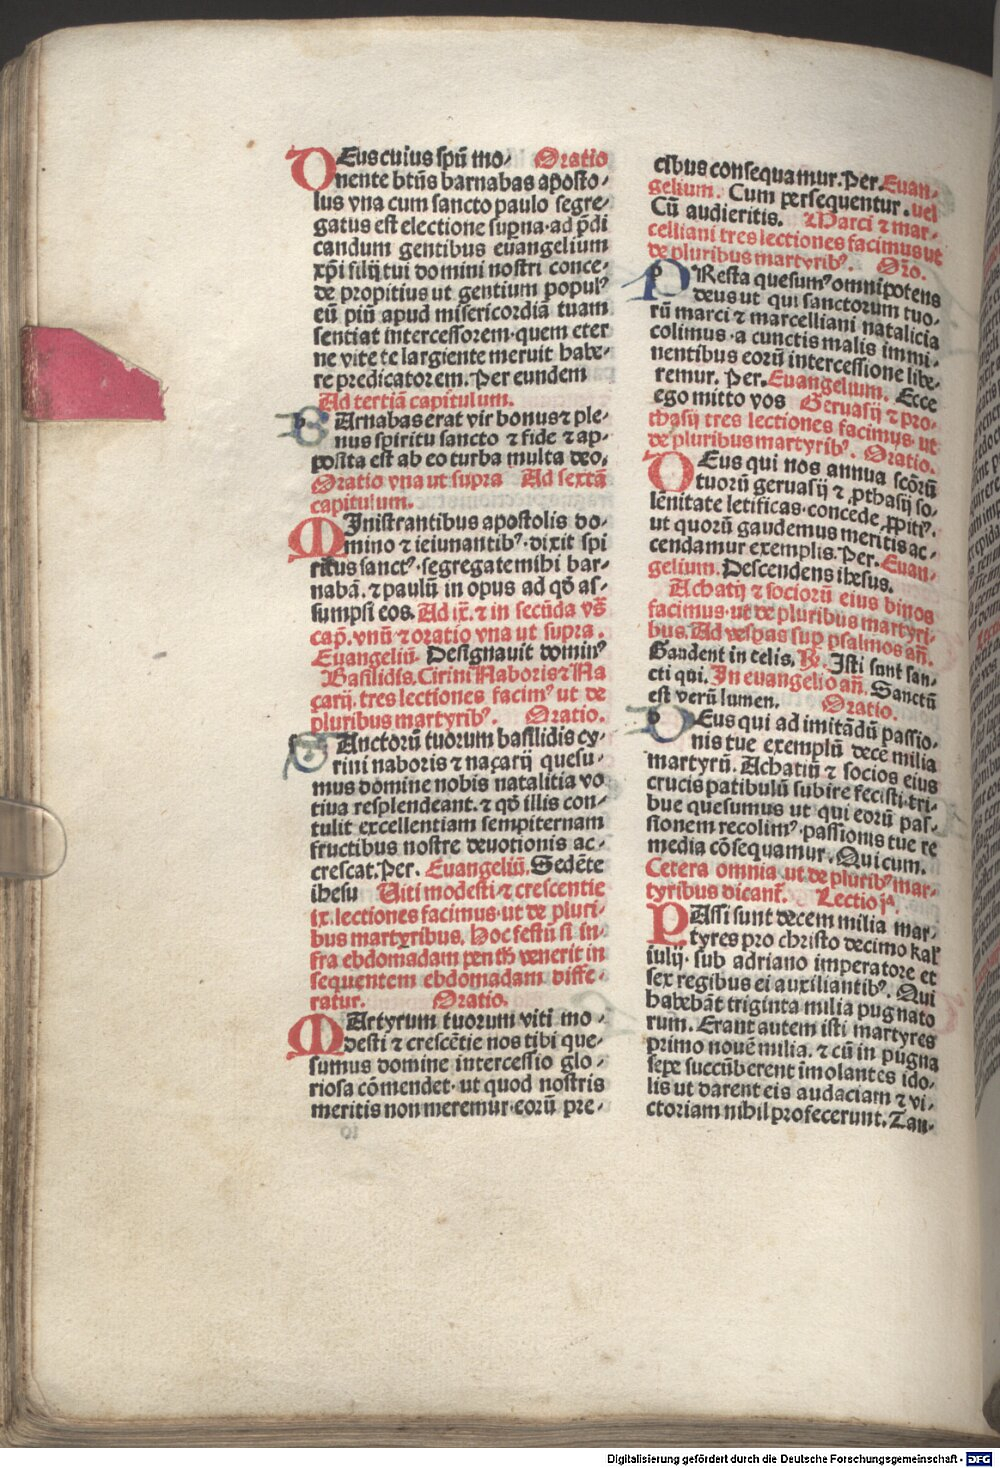 DEus cuius spū mo- Oratio
nente btūs barnabas aposto-
lus vna cum sancto paulo segre-
gatus est electione supna·ad p̄di
candum gentibus euangelium
xp̄i filij tui domini nostri conce-
de propitius ut gentium popul⁹
eū piū apud misericordiā tuam
sentiat intercessorem·quem eter
ne vite te largiente meruit habe-
re predicatorem. Per eundem
Ad tertiā capitulum.
BArnabas erat vir bonus ⁊ ple-
nus spiritu sancto ⁊ fide ⁊ ap-
posita est ab eo turba multa deo.
Oratio vna ut supra Ad sextā
capitulum.
MInistrantibus apostolis do-
mino ⁊ ieiunantib⁹·dixit spi
ritus sanct⁹·segregate mihi bar-
nabā.⁊ paulū in opus ad qđ as-
sumpsi eos. Ad ix̄.⁊ in secūda vs̄
cap̄. vnū ⁊ oratio vna ut supra.
Euangeliū. Designauit domin⁹
Basilidis. Cirini Naboris ⁊ Na
zarij. tres lectiones facim⁹ ut de
pluribus martyrib⁹. Oratio.
SAnctorū tuorum basilidis cy-
rini naboris ⁊ nazarij quesu-
mus domine nobis natalitia vo
tiua resplendeant. ⁊ qđ illis con-
tulit excellentiam sempiternam
fructibus nostre deuotionis ac-
crescat. Per. Euangeliū. Sedēte
ihesu Uiti modesti ⁊ crescentie
ix. lectiones facimus·ut de pluri-
bus martyribus. Hoc festū si in-
fra ebdomadam penth̄ venerit in
sequentem ebdomadam diffe-
ratur. Oratio.
MArtyrum tuorum viti mo-
desti ⁊ crescētie nos tibi que-
sumus domine intercessio glo-
riosa cōmendet·ut quod nostris
meritis non meremur·eorū pre-
cibus consequamur. Per. Euan-
gelium. Cum persequentur. uel
Cū audieritis. Marci ⁊ mar-
celliani tres lectiones facimus ut
de pluribus martyrib⁹. Or̄o.
PResta quesum⁹ omnipotens
deus ut qui sanctorum tuo-
rū marci ⁊ marcelliani natalicia
colimus·a cunctis malis immi-
nentibus eorū intercessione libe-
remur. Per. Euangelium. Ecce
ego mitto vos Geruasij ⁊ pro-
thasij tres lectiones facimus ut
de pluribus martyrib⁹. Oratio.
DEus qui nos annua scōrū
tuorū geruasij ⁊ ꝓthasij so-
lēnitate letificas·concede ꝓpiti⁹.
ut quorū gaudemus meritis ac-
cendamur exemplis. Per. Euan-
gelium. Descendens ihesus.
Achatij ⁊ sociorū eius binos
facimus·ut de pluribus martyri-
bus. Ad vesp̄as sup̄ psalmos an̄.
Gaudent in celis. ℟. Isti sunt san-
cti qui. In euangelio an̄. Sanctū
est verū lumen. Oratio.
DEus qui ad imitādū passio-
nis tue exemplū decē milia
martyrū. Achatiū ⁊ socios eius
crucis patibulū subire fecisti·tri-
bue quesumus ut qui eorū pas-
sionem recolim⁹·passionis tue re
media cōsequamur. Qui cum.
Cetera omnia ut de plurib⁹ mar-
tyribus dicant̄. Lectio jᵃ.
PAssi sunt decem milia mar-
tyres pro christo decimo kal'
iulij·sub adriano imperatore et
sex regibus ei auxiliantib⁹. Qui
habebāt triginta milia pugnato
rum. Erant autem isti martyres
primo nouē milia. ⁊ cū in pugna
sepe succūberent īmolantes ido-
lis ut darent eis audaciam ⁊ vi-
ctoriam nihil profecerunt. Tan-
Digitalisierung gefördert durch die Deutsche Forschungsgemeinschaft - DFG